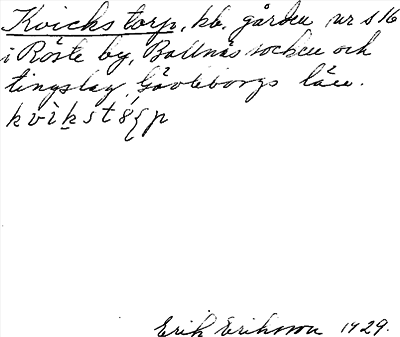 Kvickstorp, hb. gården nr s 16
i Röste by, Bollnäs socken och
tingslag, Gävleborgs län.
kvikst
Erik Eriksson 1929.